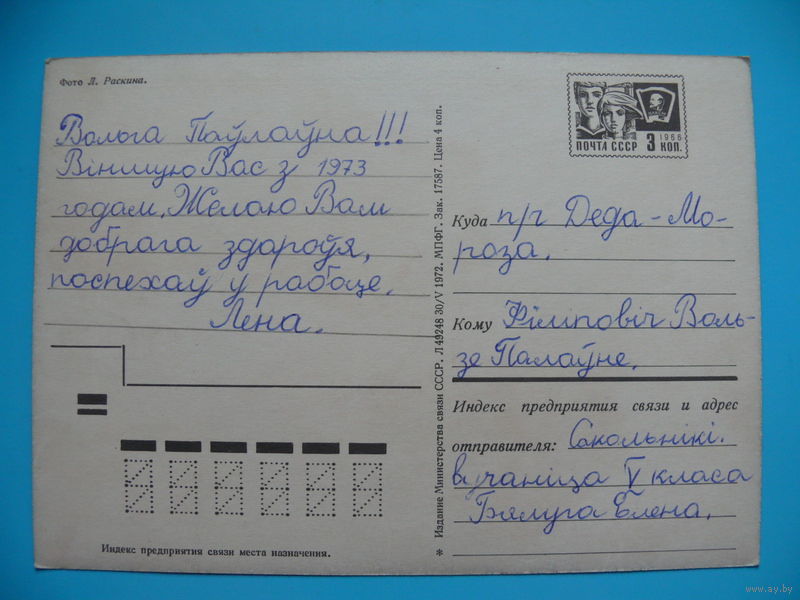 Фото Л. Раскина.
Вольга Паўлаўна!!!
Віншую Вас з 1973
годам. Желаю Вам
добрага здароўя,
поспехаў у рабоце.
Лена.
Индекс предприятия связи места назначения.
Издание Министерства связи СССР. Л 49248 30/V 1972. МПФГ. Зак. 17587. Цена 4 коп.
1966
ПОЧТА СССР 3 КОП.
Куда п/г Деда-Мо-
роза.
Кому Філіповіч Воль-
зе Палаўне.
Индекс предприятия связи и адрес
отправителя: Сакольнікі.
вучаніца V класа
Бялуга Елена.
www.ay.by